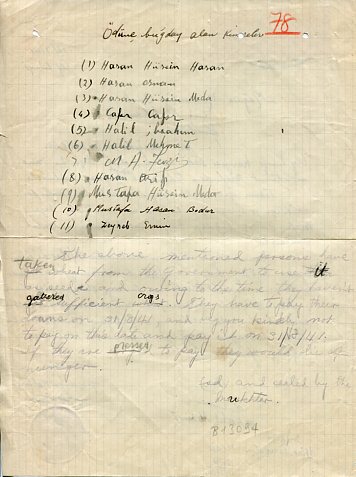 Ödünç buğday alan kimseler 78
(1) Hasan Hüsein Hasan
(2) Hasan osman
(3) Hasan Hüsein Meda
(4) Cafer Cafer
(5) Halil ibrahim
(6) Halil Mehmet
7) M. A. Fevzi
(8) Hasan
(9) Mustafa Hüsein
(10) Mustafa Hasan Bodur
(11) Zeyneb Emin
The above mentioned persons have
taken wheat from the Government to use it
by seed and owing to the time they haven't
gatteres sufficient orqs They have to pay their
loans on 31/8/41, and you kindly not
to pay on this date and pay it on
if they are presses to pay they would die of
hunger.
and sealed by the
mukhtar.
B13094